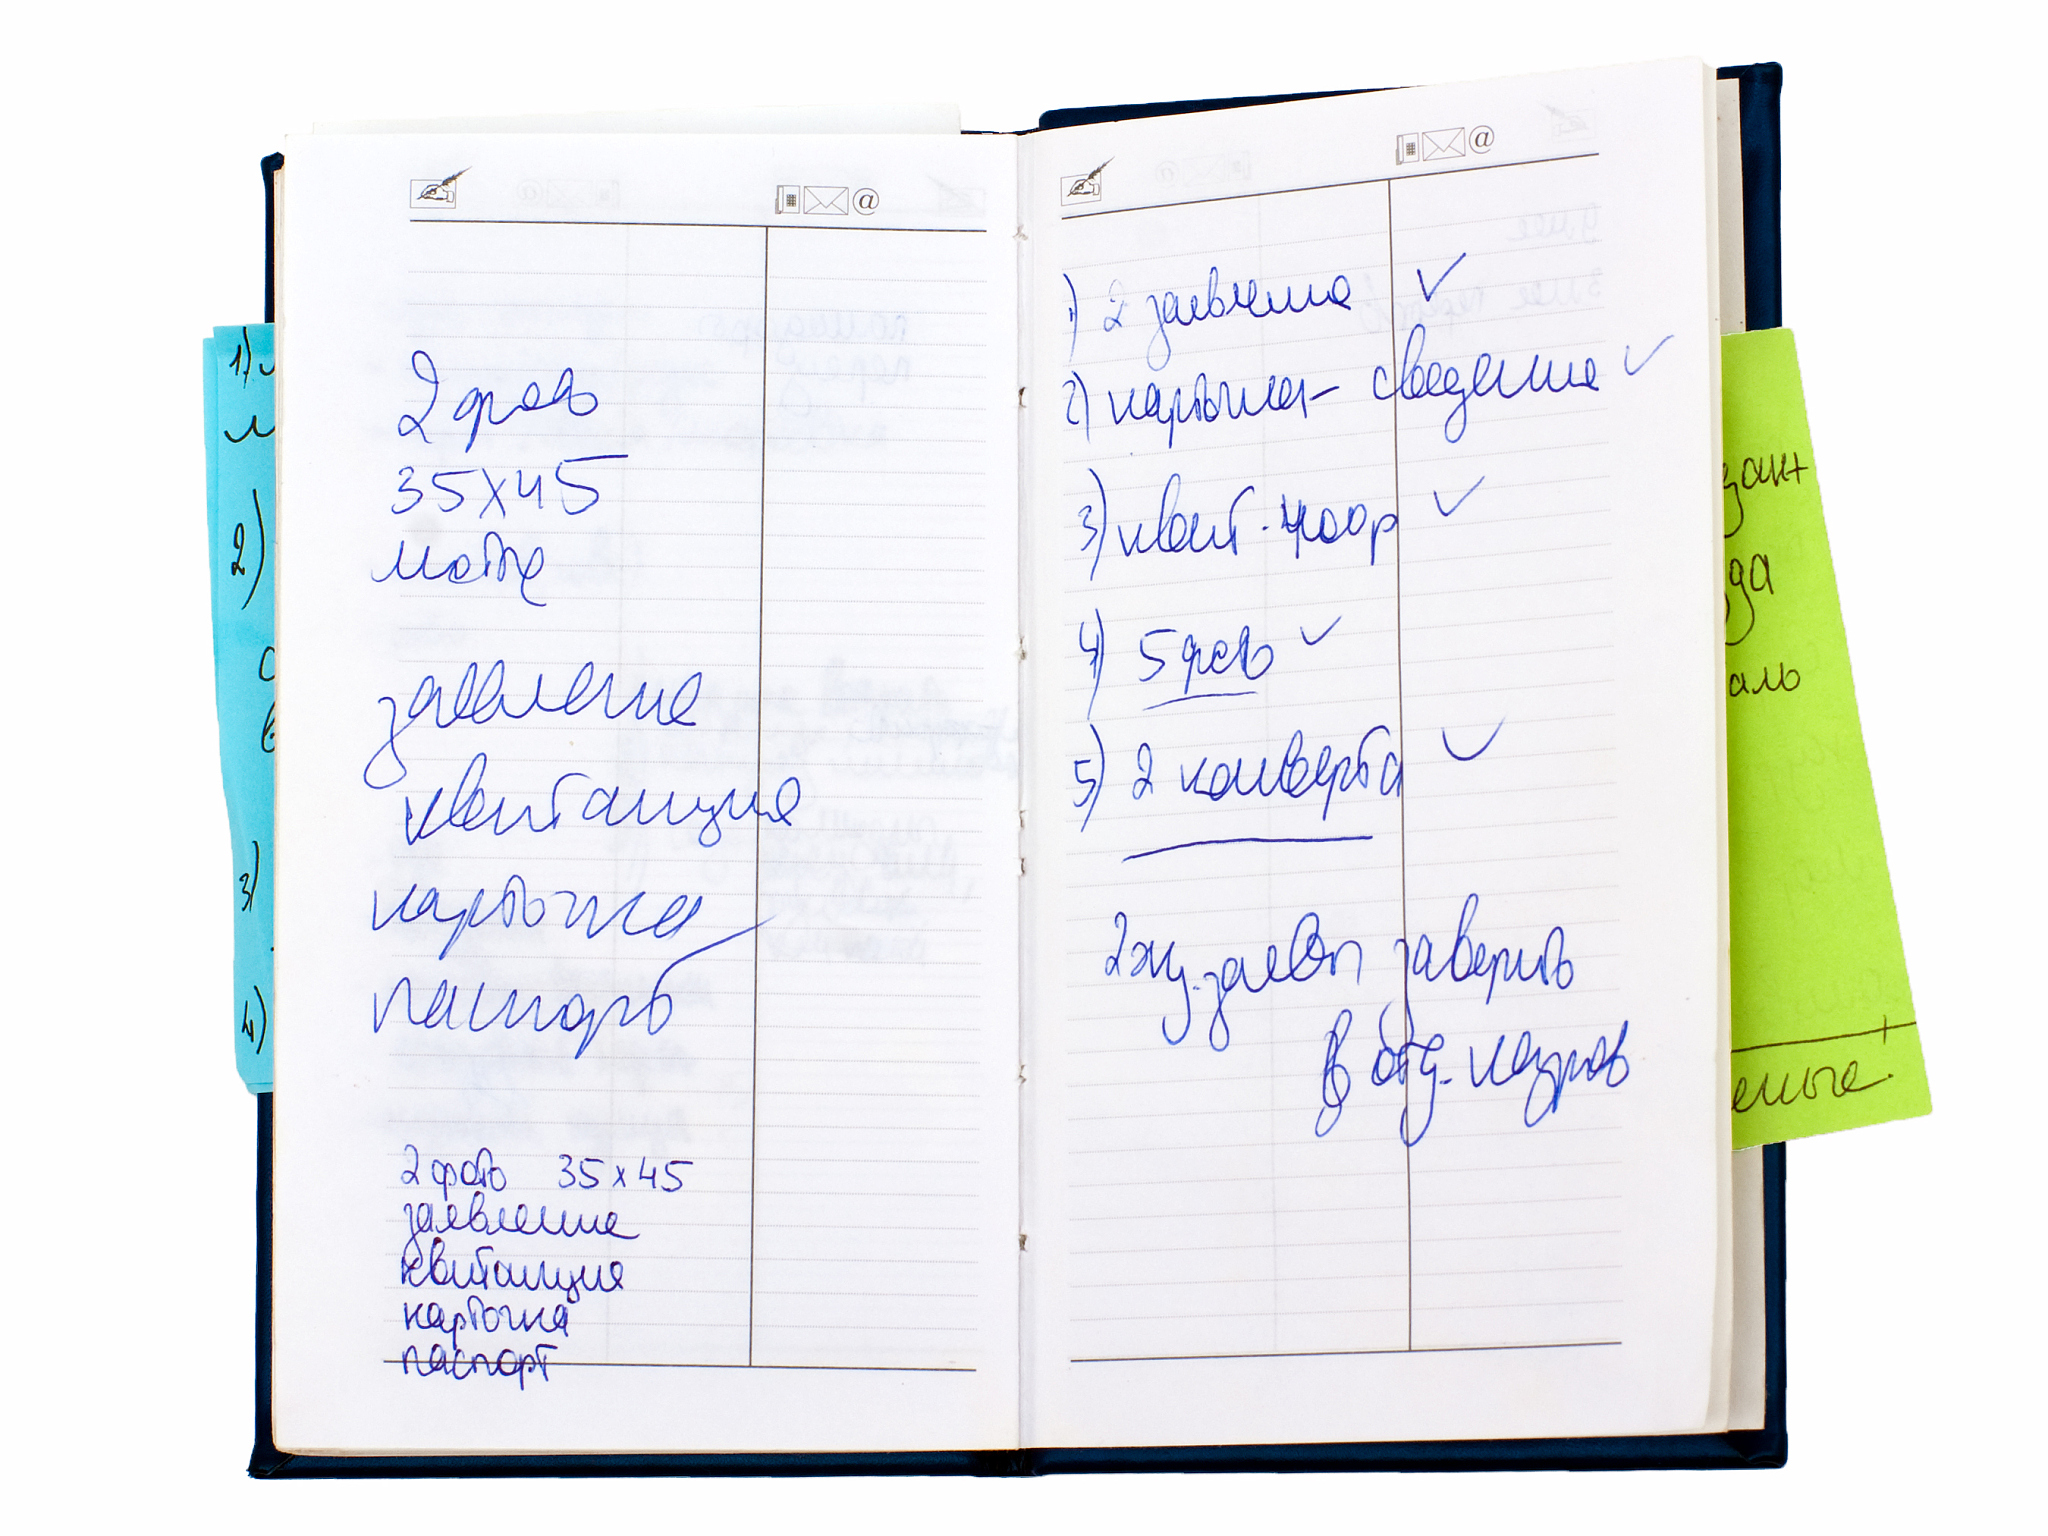 2 фото
35х45
матте
заявление
квитанция
карточка
паспорт
2 фото 35х45
заявление
квитанция
карточка
паспорт
1) 2 заявления ✓
2) карточка - сведения ✓
3) квит. 400р ✓
4) 5 фото ✓
5) 2 конверта ✓
заверить
в отд. кадров
1)
2)
3)
4)
аль
еные.
@
@